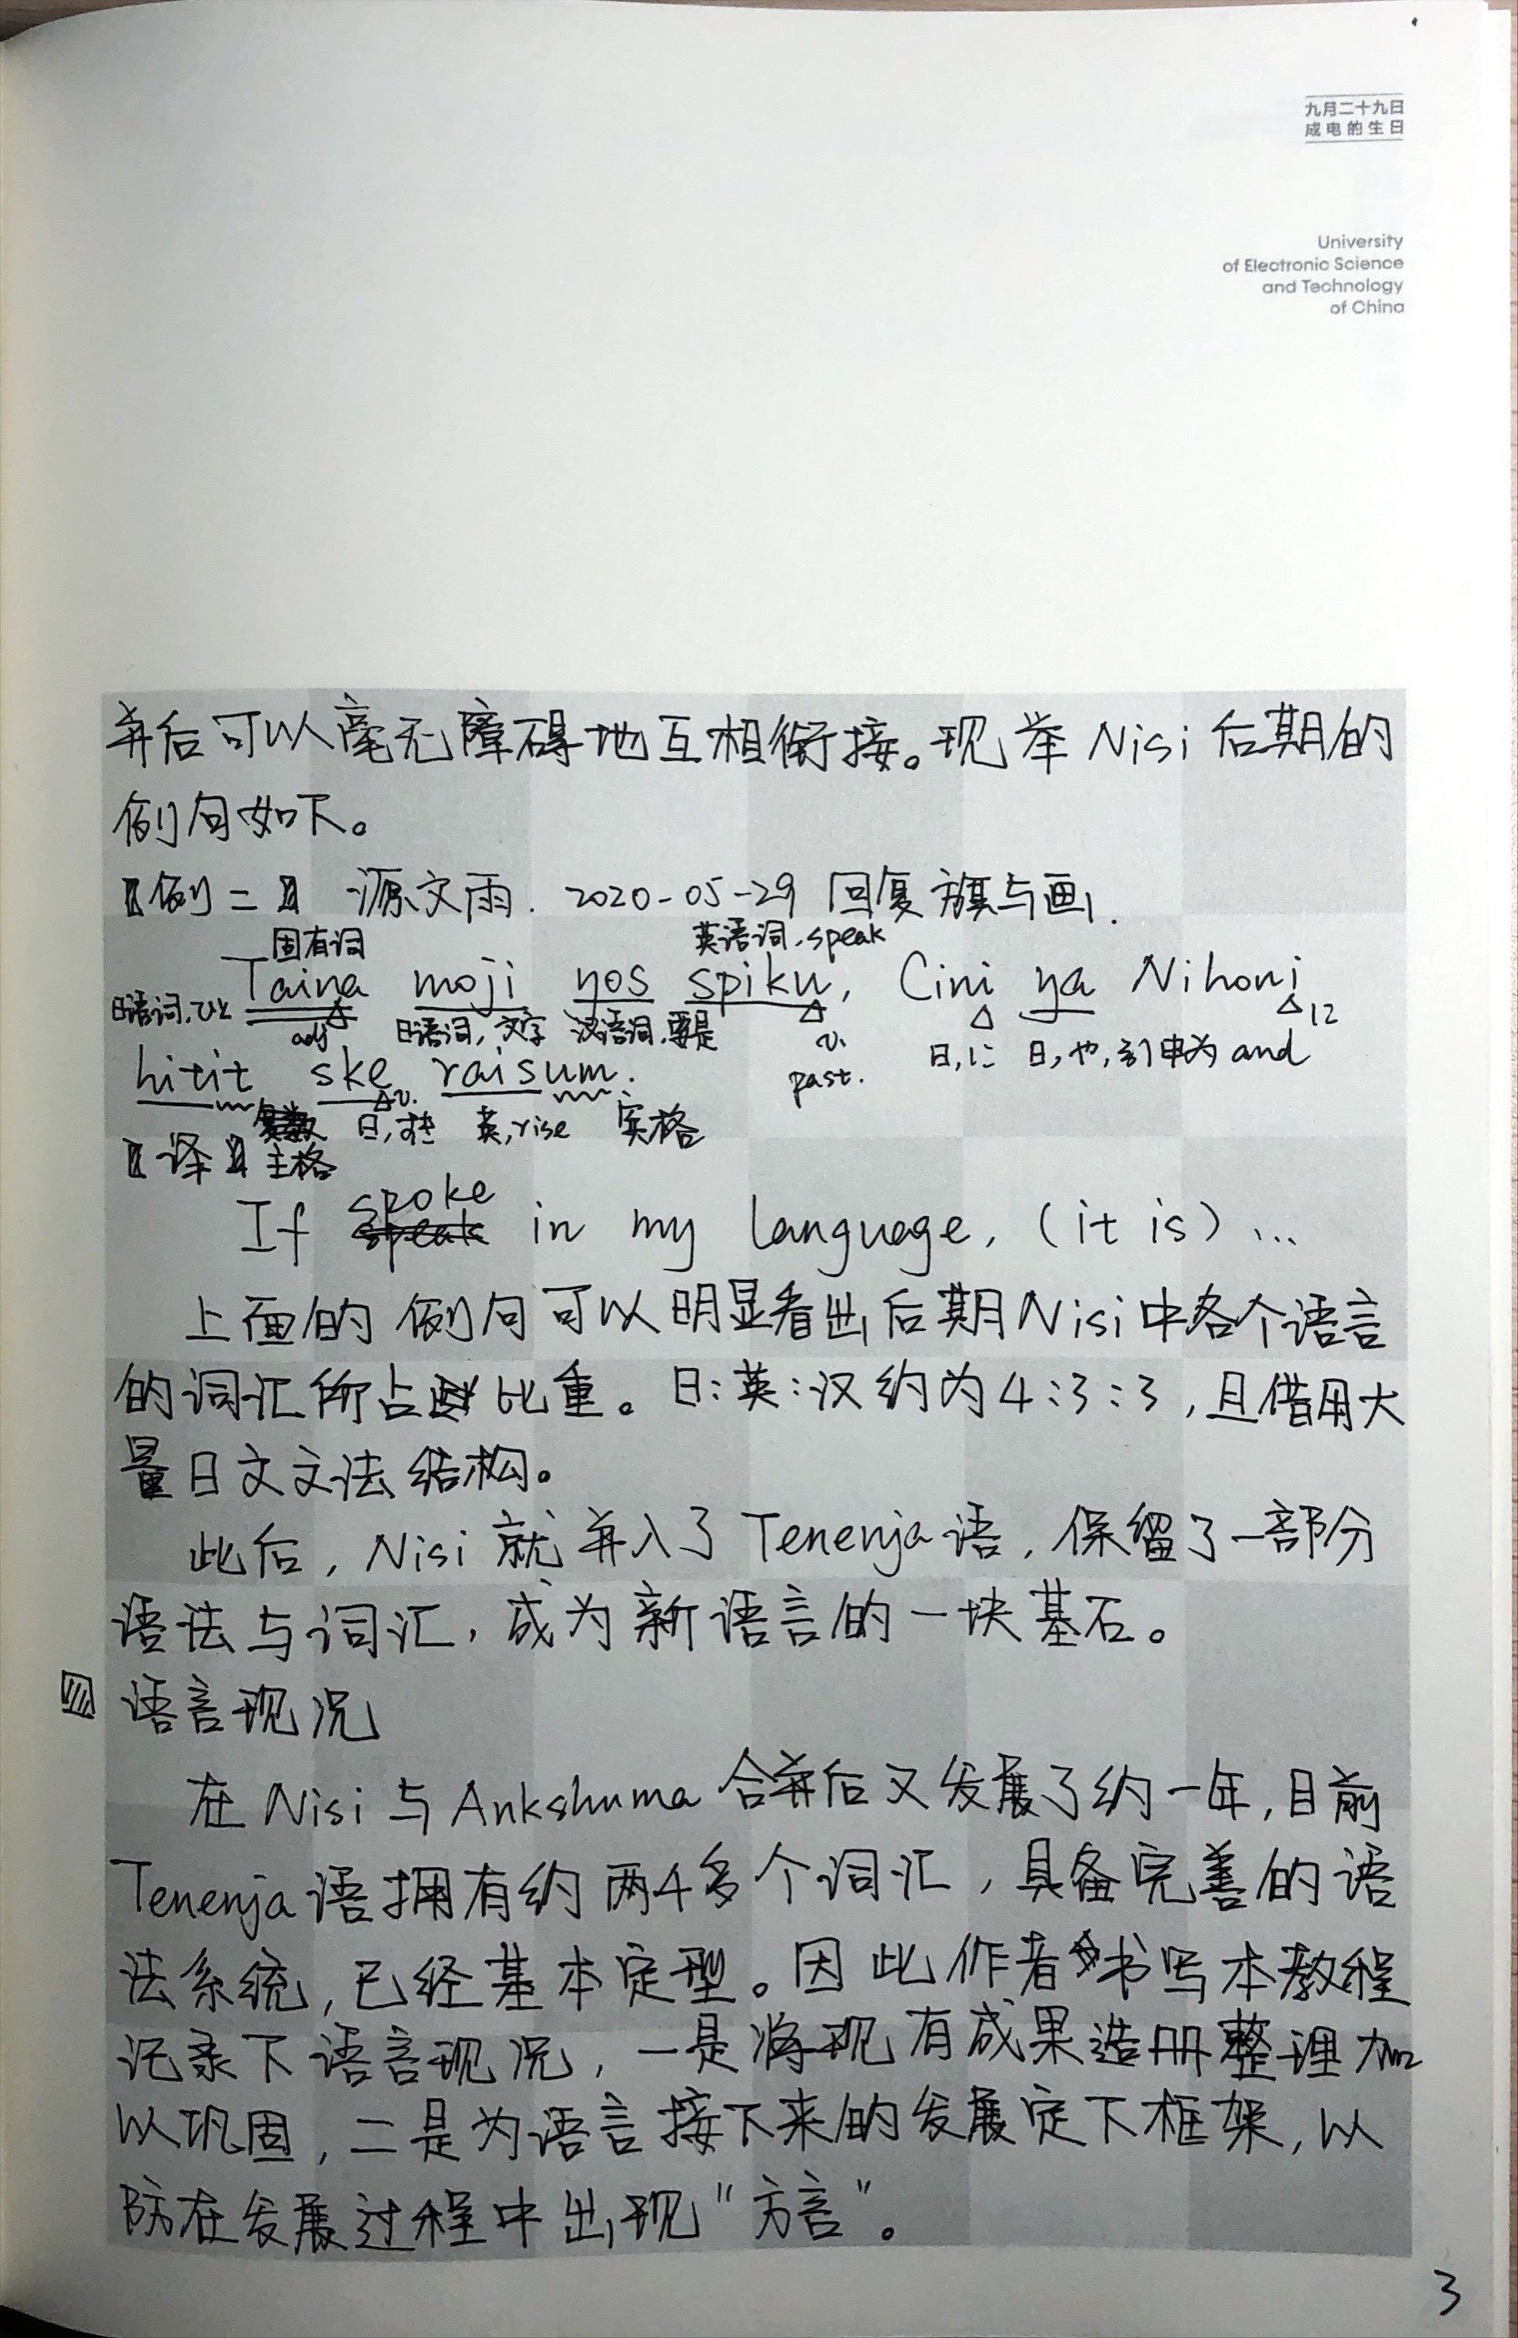 九月二十九日
成电的生日
University
of Electronic Science
and Technology
of China
并后可以毫无障碍地互相衔接。现举Nisi后期的
例句如下。
【例二】 源文雨. 2020-05-29 回复 旗与画.
固有词 英语词, speak
Taina moji yos spiku, Cini ya Nihoni
日语词, ひと adj 日语词, 文字 汉语词, 要是 v. past. 日, に 日, や, 引申为 and に
hitit ske raisum.
复数 v. 日, すき 英, rise 宾格
【译】 主格
If spoke in my language, (it is) ...
上面的例句可以明显看出后期Nisi中各个语言
的词汇所占比重。日:英:汉约为4:3:3,且借用大
量日文文法结构。
此后, Nisi就并入了Tenenja语, 保留了一部分
语法与词汇, 成为新语言的一块基石。
语言现况
在Nisi与Ankshuma合并后又发展了约一年, 目前
Tenenja语拥有约两千多个词汇, 具备完善的语
法系统, 已经基本定型。因此作者书写本教程
记录下语言现况, 一是将现有成果造册整理加
以巩固, 二是为语言接下来的发展定下框架, 以
防在发展过程中出现"方言"。
3